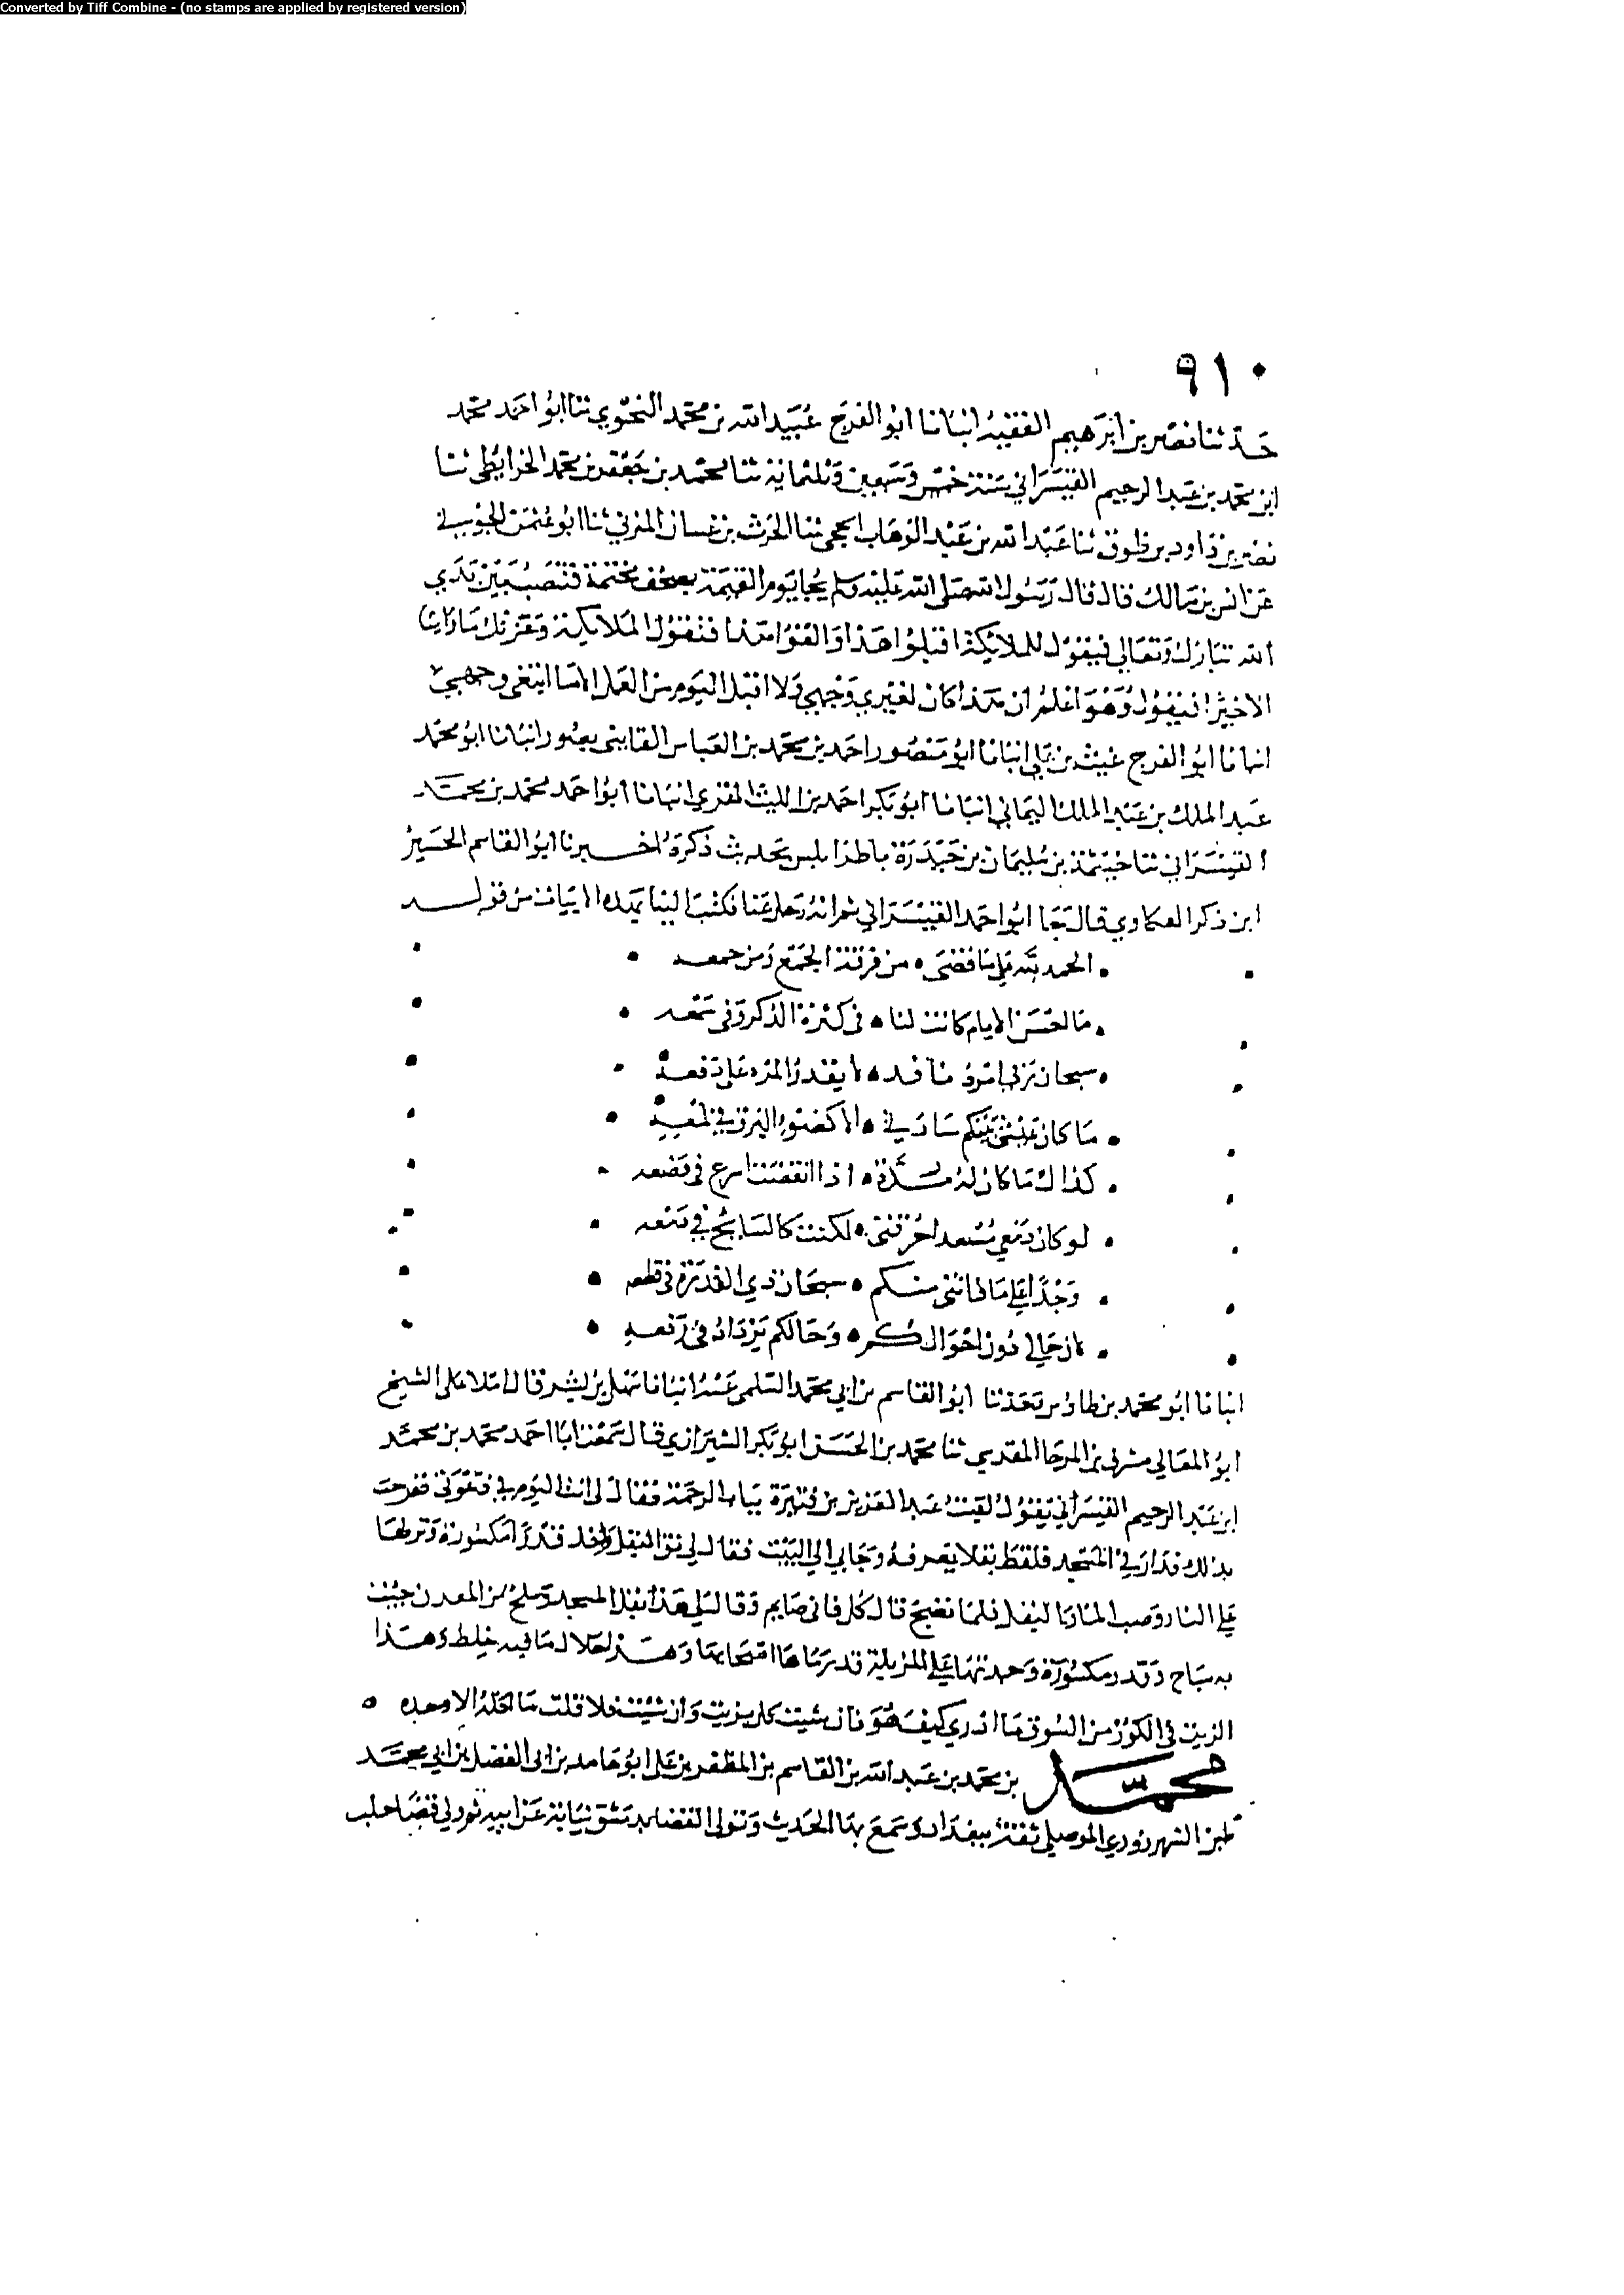 Converted by Tiff Combine - (no stamps are applied by registered version)
٩١٠
حدثنا نصر بن ابرهيم الفقيه انبانا ابو الفرج عبيد الله بن محمد النحوي ثنا ابو احمد محمد
ابن محمد بن عبد الرحيم القيسراني سنة خمس وسبعين وثلثمائة ثنا محمد بن جعفر بن محمد الخرايطي ثنا
نصر بن داود بن طوق ثنا عبد الله بن عبد الوهاب الحجبي ثنا الحرث بن غسان المزني ثنا ابو عمرن الجوني
عن انس بن مالك قال قال رسول الله صلى الله عليه وسلم يجا يوم القيمة بصحف مختمة فتنصب بين يدي
الله تبارك وتعالى فيقول للملايكة اقبلوا هذا والقوا هذا فتقول الملايكة وعزتك ما راينا
الا خيرا فيقول وهو اعلم ان هذا كان لغيري وجهي ولا اقبل اليوم من العمل الا ما ابتغى وجهي
انبانا ابو الفرج غيث بن علي انبانا ابو منصور احمد بن محمد بن العباس القايني بصور انبانا ابو محمد
عبد الملك بن عبد الملك اليماني انبانا ابو بكر احمد بن الليث المقري انبانا ابو احمد محمد بن محمد
القيسراني ثنا خيثمة بن سليمان بن حيدرة باطرابلس بحديث ذكره اخبرنا ابو القاسم الحسين
ابن ذكر العكاوي قال جا ابو احمد القيسراني ثم انه رحل عنا فكتب الينا بهذه الابيات من قوله
الحمد لله على ما قضى من فرقة الجمع ومن جمعه
ما احسن الايام كانت لنا في كثرة الذكر وفي سمعه
سبحان ربي امره نافد لا يقدر المرء على دفعه
ما كان عيشي بينكم سادتي الا كضوء البرق في لمعه
كذاك ما كان له مدة اذا انقضت اسرع في قضعه
لو كان دمعي مسعد احرقتي لكنت كالسابح في دمعه
وجدا على ما فاتني منكم سبحان ذي القدرة في قطعه
لان حالي دون احوالكم وحالكم يزداد في رفعه
انبانا ابو محمد بن طاوس وحدثنا ابو القاسم بن ابي محمد السلمي عنه انبانا سهل بن بشر قال املا على الشيخ
ابو المعالي مشرف بن المرجا المقدسي ثنا محمد بن الحسن ابو بكر الشيرازي قال سمعت ابا احمد محمد بن محمد
ابن عبد الرحيم القيسراني يقول لقيت عبد العزيز بن بباب الرحمة فقال لي انت اليوم في دعوتي ففرحت
بذلك فدار في المسجد فلقط بقلا يعرفه وجا بي الى البيت فقال لي نق البقل واخد قدرا مكسورة وتركها
على النار وصب الماء البقل فلما نضج قال كل فاني صايم وقال لي هذا بقل المسجد وملح من المعدن جيت
به سياح وقدر مكسورة وجدتها على المزبلة قد رماها اصحابها وهذا حلال ما فيه خلط وهذا
الزيت في الكوز من السوق ما ادري كيف هو فان شيت كل بزيت وان شيت فلا قلت ما اكله الا وحده
محمد بن محمد بن عبد الله بن القاسم بن المظفر بن علي ابو حامد بن ابي الفضل بن ابي محمد
الشهرزوري الموصلي تفقه ببغداد وسمع بها الحديث وتولى القضا بدمشق نيابة عن ابيه ثم ولي قضا حلب